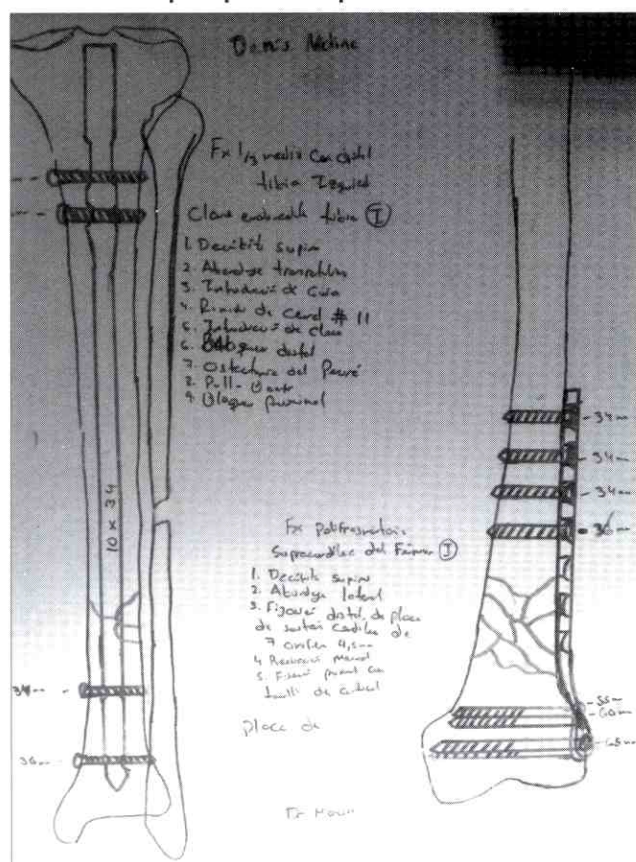 Denis
Fx 1/3 medio con distal
tibia Izquierd
Clavo endomedular tibia (I)
1. Decúbito supino
2. Abordaje
3. Introducción de Guía
4. Rimado de Canal # 11
5. Introducción de Clavo
6. Bloqueo distal
7. Osteotomía del Peroné
8.
9. Bloqueo Proximal
10 x 34
34mm
36mm
Fx Polifragmentaria
Supracondílea del Fémur (I)
1. Decúbito supino
2. Abordaje lateral
3. Fijación distal de placa
de sostén condíleo de
7 orificios 4,5mm
4 Reducción Manual
5. Fijación proximal con
tornillos de cortical
placa de
34mm
34mm
34mm
36mm
55mm
60mm
65mm